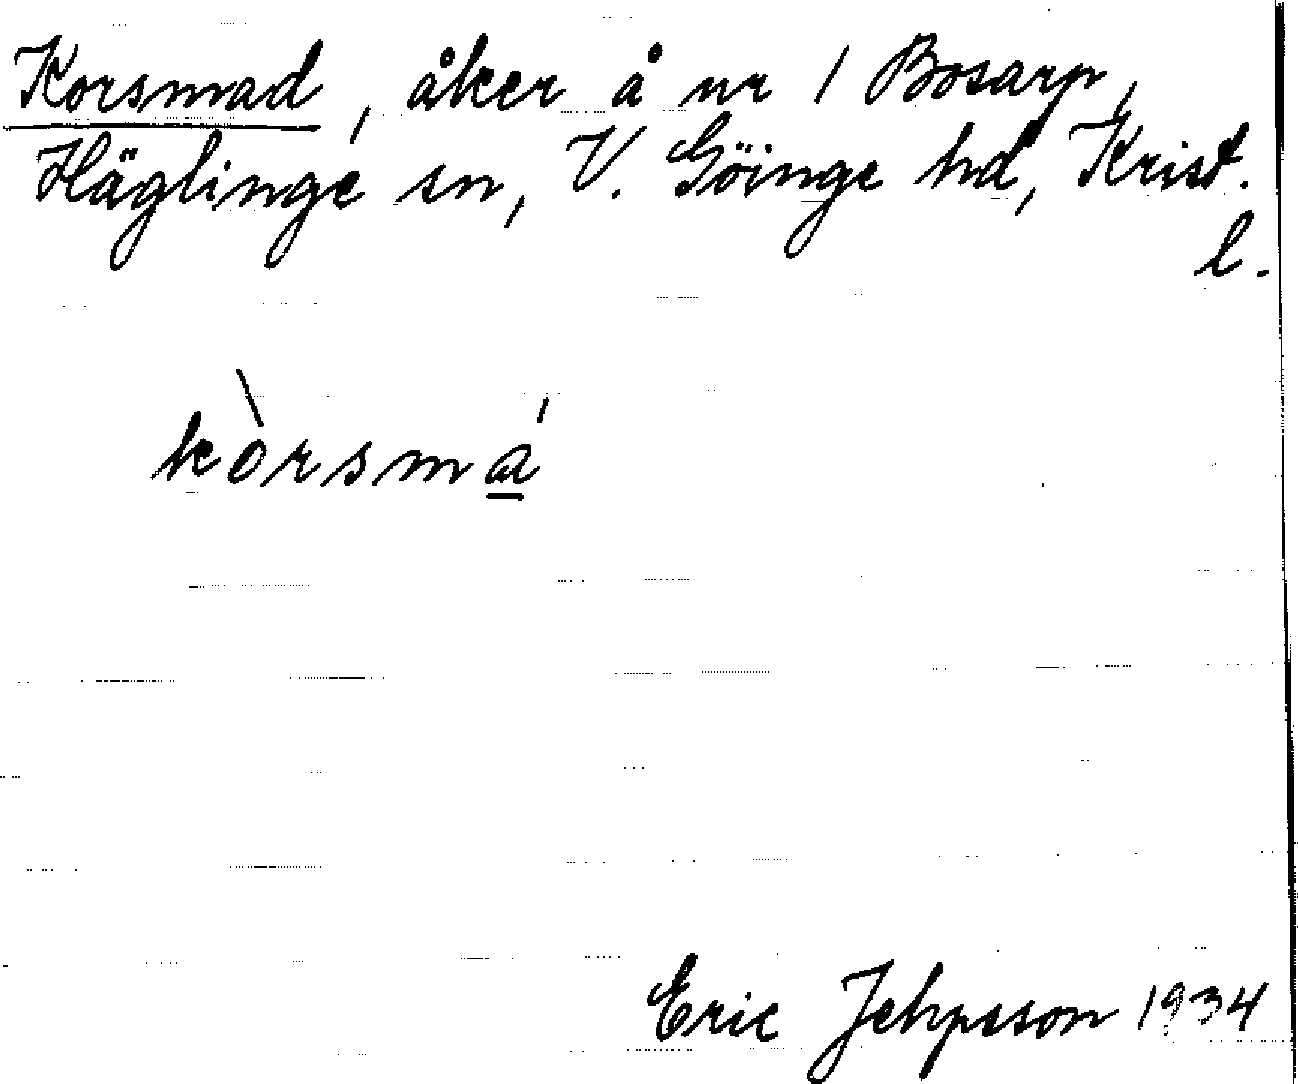 Korsmad, åker å nr 1 Bosarp,
Häglinge sn, V. Göinge hd, Krist.
l.
kòrsmá
Eric Jehpsson 1934